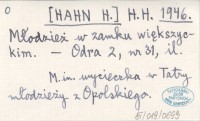 0
[HAHN H.] H.H. 1946.
Młodzież w zamku większyc-
kim. – Odra 2, nr 31, il.
M.in. wycieczka w Tatry
młodzieży z Opolskiego.